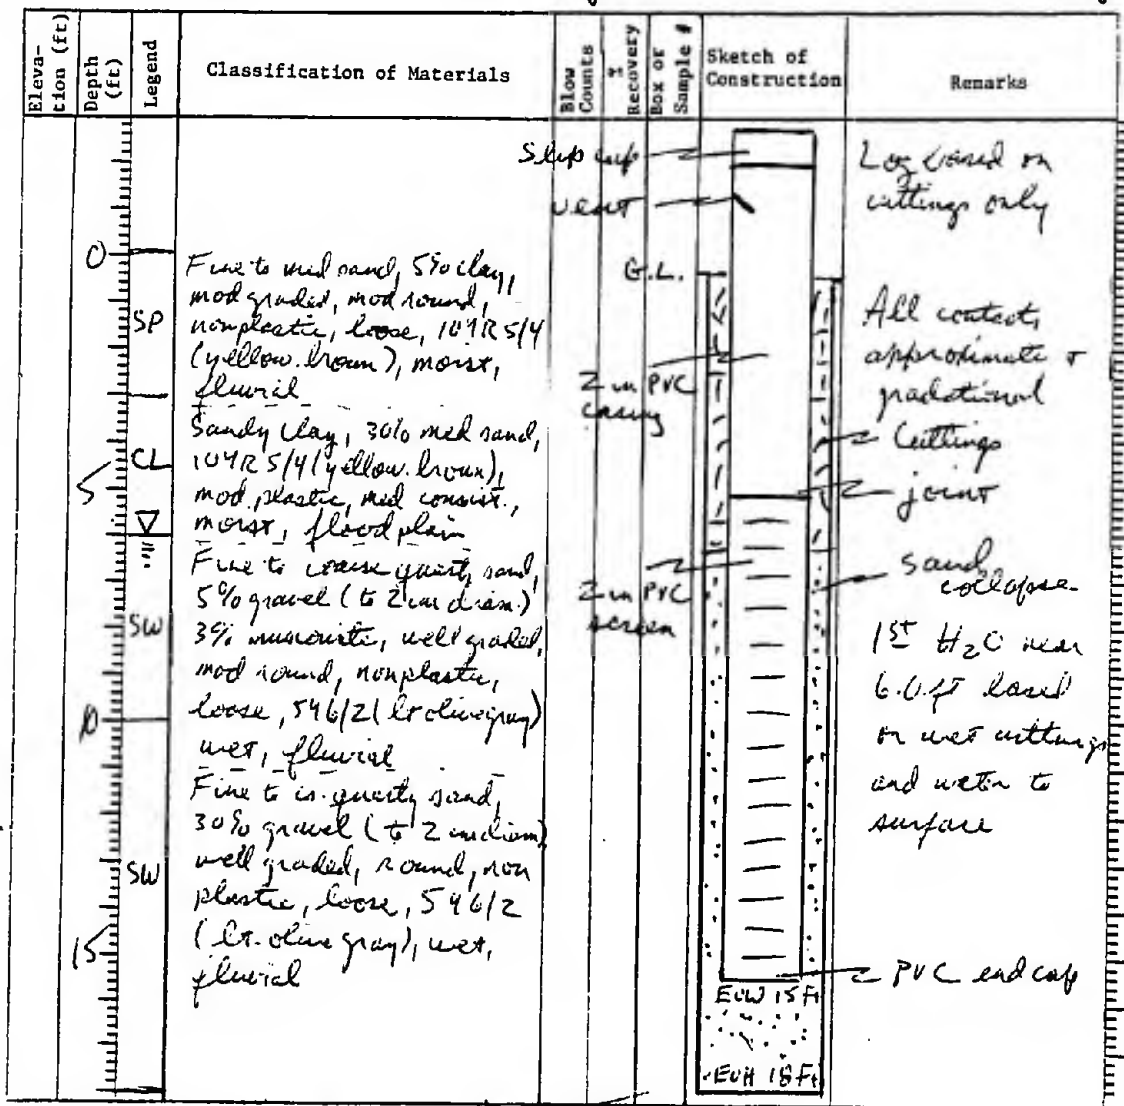 Eleva-
tion (ft)
Depth
(ft)
Legend
Classification of Materials
Blow
Counts
%
Recovery
Box or
Sample #
Sketch of
Construction
Remarks
Slip cap
vent
G.L.
2 in PVC
casing
2 in PVC
screen
0
5
10
15
SP
CL
SW
SW
Fine to med sand, 5% clay,
mod graded, mod round,
nonplastic, loose, 10YR 5/4
(yellow. brown), moist,
fluvial
Sandy clay, 30% med sand,
10YR 5/4 (yellow. brown),
mod. plastic, med consist.,
moist, floodplain
Fine to coarse quartz sand,
5% gravel (to 2 cm diam.)
3% muscovite, well graded,
mod round, nonplastic,
loose, 5Y6/2 (lt olive gray)
wet, fluvial
Fine to cs. quartz sand,
30% gravel (to 2 cm diam)
well graded, round, non
plastic, loose, 5Y6/2
(lt. olive gray), wet,
fluvial
EOW 15 Ft
EOH 18 Ft
Log based on
cuttings only
All contacts
approximate +
gradational
Cuttings
joint
sand
collapse
1st H2O near
6.0 ft based
on wet cuttings
and water to
surface
PVC end cap